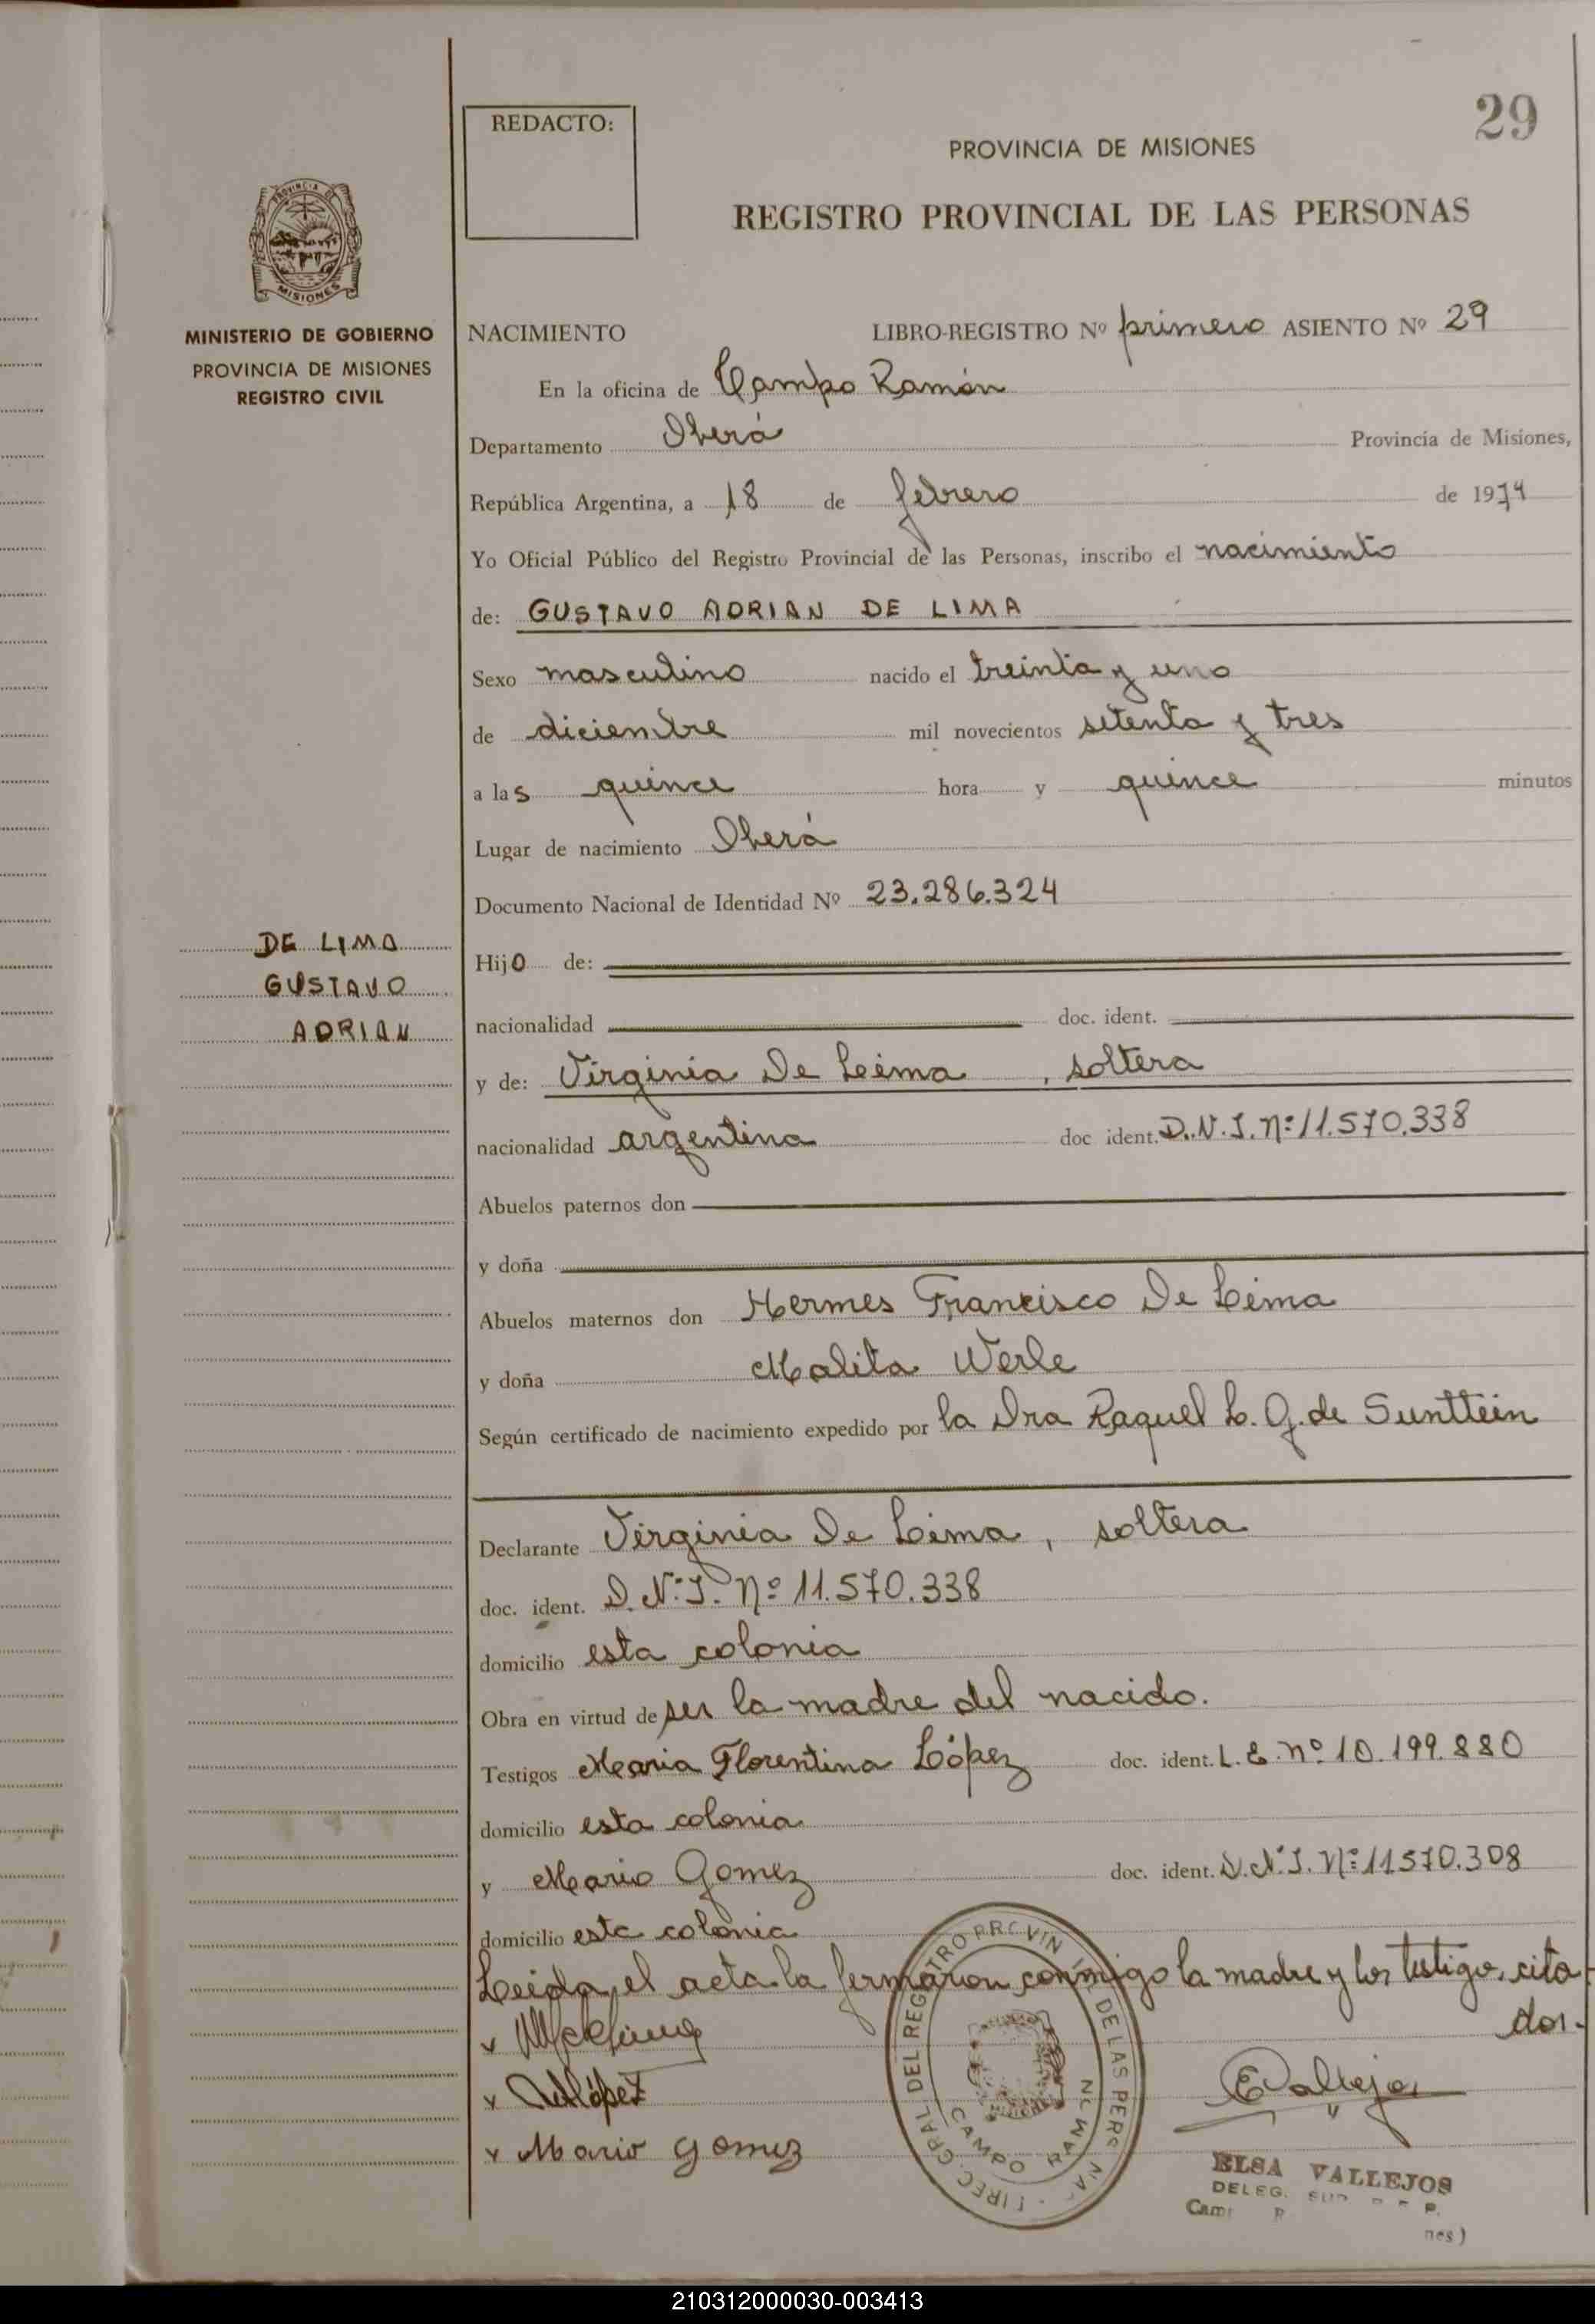 29
REDACTO:
PROVINCIA DE MISIONES
REGISTRO PROVINCIAL DE LAS PERSONAS
PROVINCIA DE
MISIONES
MINISTERIO DE GOBIERNO
PROVINCIA DE MISIONES
REGISTRO CIVIL
NACIMIENTO LIBRO-REGISTRO Nº primero ASIENTO Nº 29
En la oficina de Campo Ramón
Departamento Oberá Provincia de Misiones,
República Argentina, a 18 de febrero de 1974
Yo Oficial Público del Registro Provincial de las Personas, inscribo el nacimiento
de: GUSTAVO ADRIAN DE LIMA
Sexo masculino nacido el treinta y uno
de diciembre mil novecientos setenta y tres
a las quince hora y quince minutos
Lugar de nacimiento Oberá
Documento Nacional de Identidad Nº 23.286.324
DE LIMA
GUSTAVO
ADRIAN
Hijo de:
nacionalidad doc. ident.
y de: Virginia De Lima, soltera
nacionalidad argentina doc ident. D.N.I. Nº 11.570.338
Abuelos paternos don
y doña
Abuelos maternos don Hermes Francisco De Lima
y doña Malita Werle
Según certificado de nacimiento expedido por la Dra Raquel L. G. de Sunttein
Declarante Virginia De Lima, soltera
doc. ident. D.N.I. Nº 11.570.338
domicilio esta colonia
Obra en virtud de ser la madre del nacido.
Testigos Maria Florentina López doc. ident. L.E. nº 10.199.880
domicilio esta colonia
y Mario Gomez doc. ident. D.N.I. Nº 11570.308
domicilio esta colonia
Leida el acta la firmaron conmigo la madre y los testigos cita
dos.-
x
x López
x Mario gomez
EVallejos
DIREC. GRAL DEL REGISTRO PROVIN DE LAS PERS
CAMPO RAMON
ELSA VALLEJOS
DELEG.
210312000030-003413